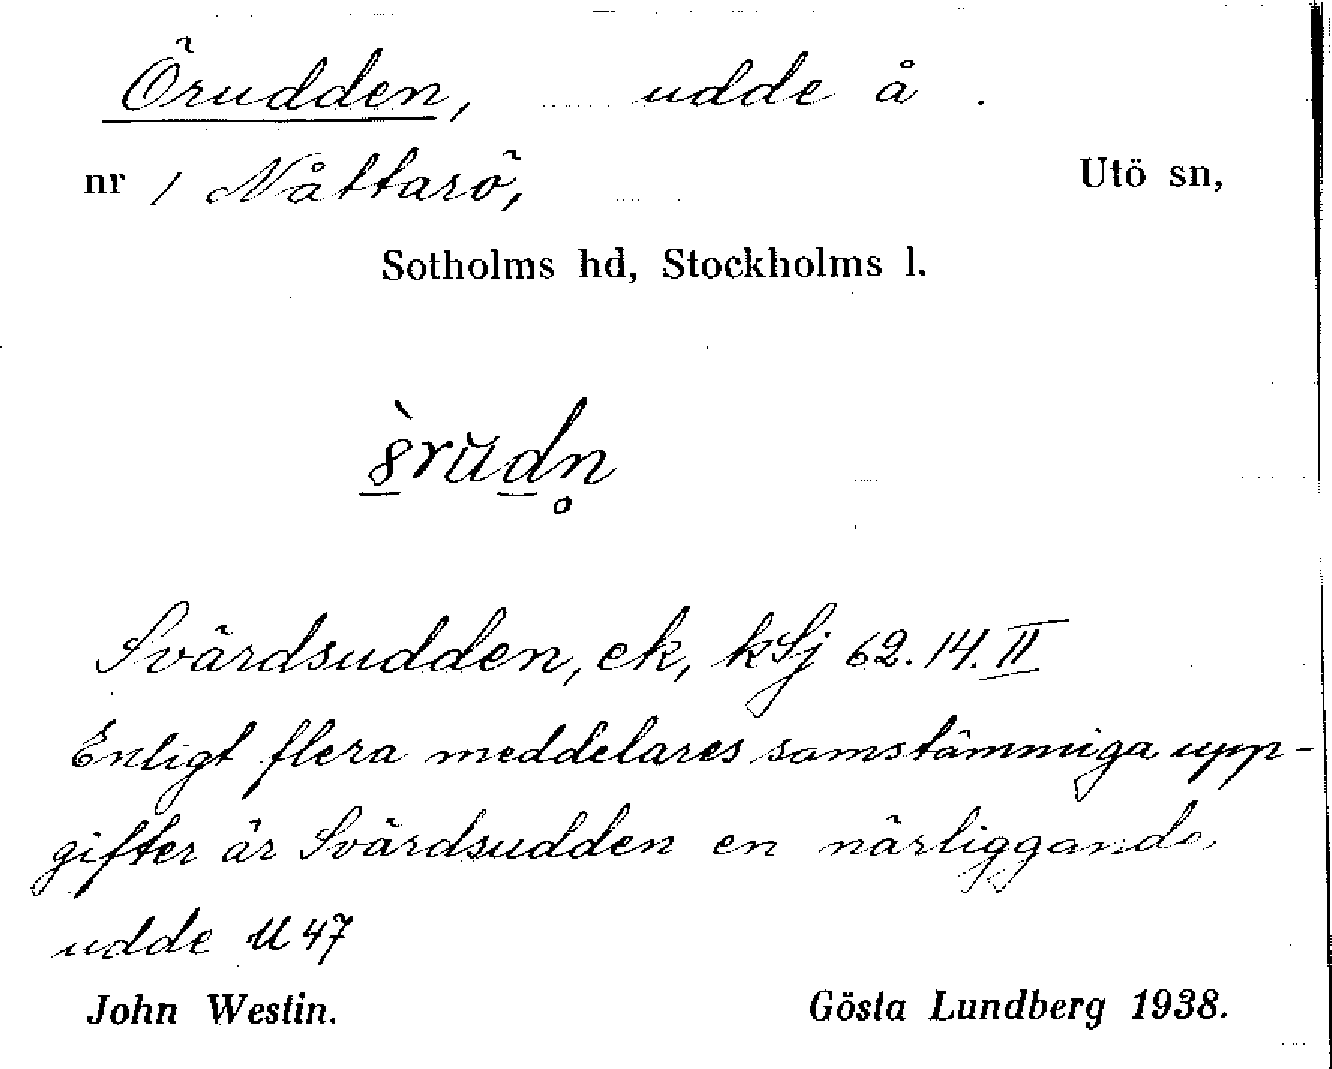 Örudden, udde å .
nr 1 Nåttarö, Utö sn,
Sotholms hd, Stockholms l.
Svärdsudden, ek, kSj 62.14.II
Enligt flera meddelares samstämmiga upp-
gifter är Svärdsudden en närliggande
udde U 47
John Westin. Gösta Lundberg 1938.